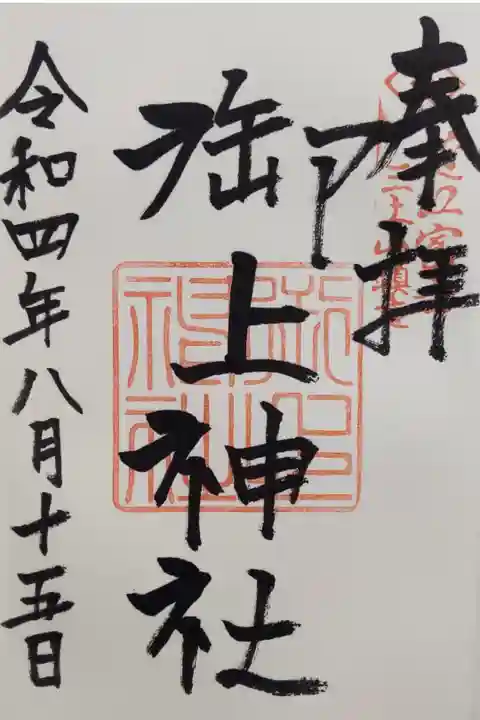 奉拝
御上神社
令和四年八月十五日